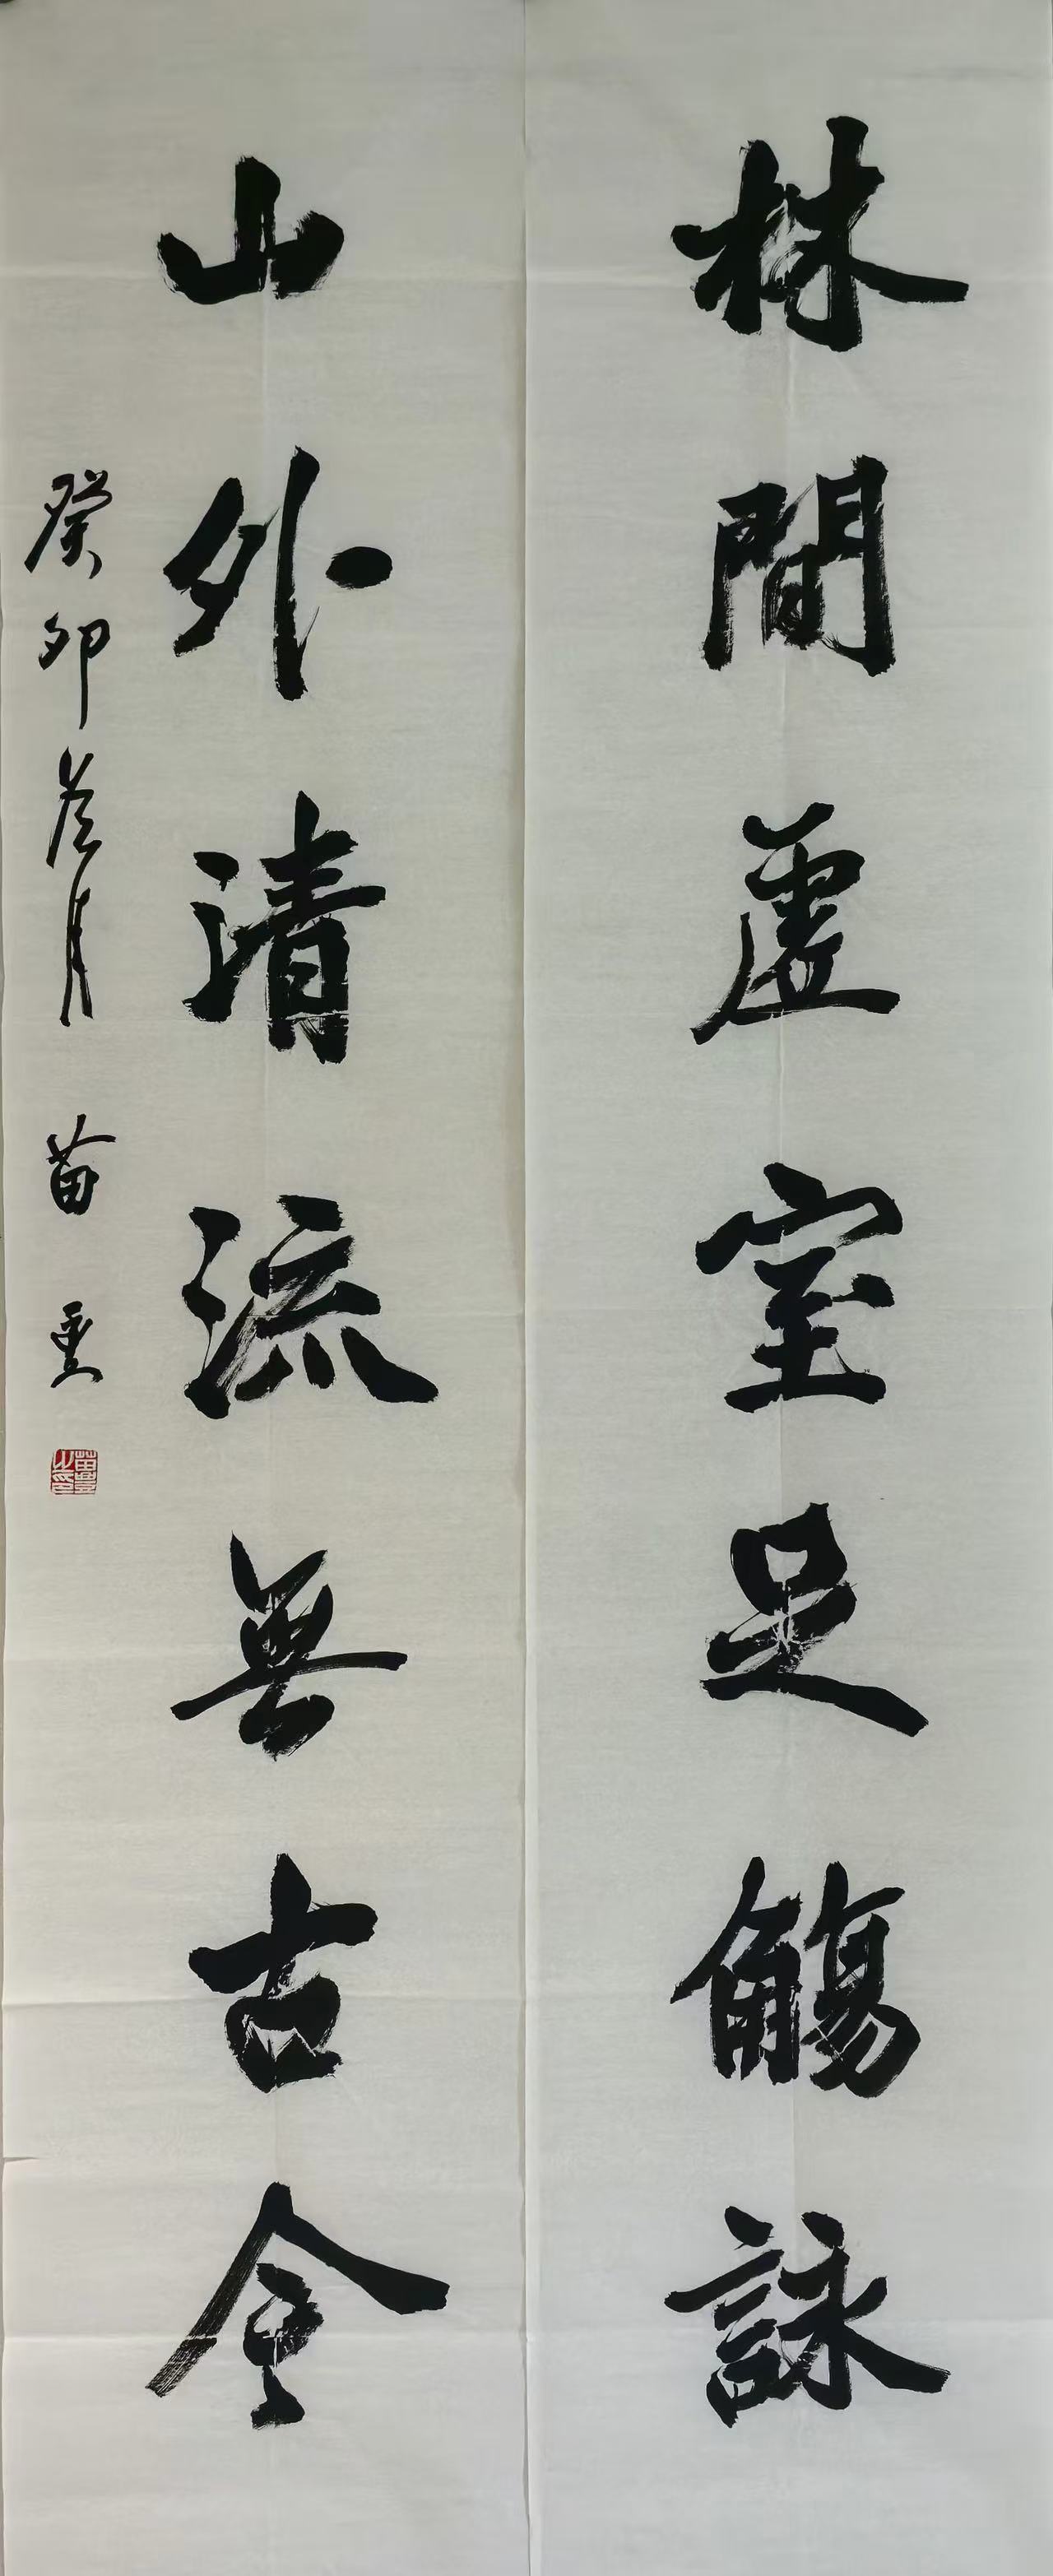 林間虛室足觴詠
山外清流無古今
癸卯荷月 苗墨